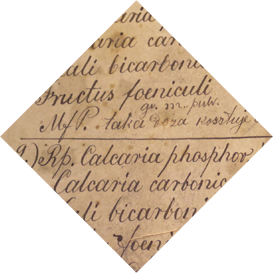 caria car
ali bicarbon
Fructus foeniculi
qu. m. pulv.
M.f.P. taka doza kosztuje
2.) Rp. Calcaria phosphor
Calcaria carbonic
ali bicarbon
foen